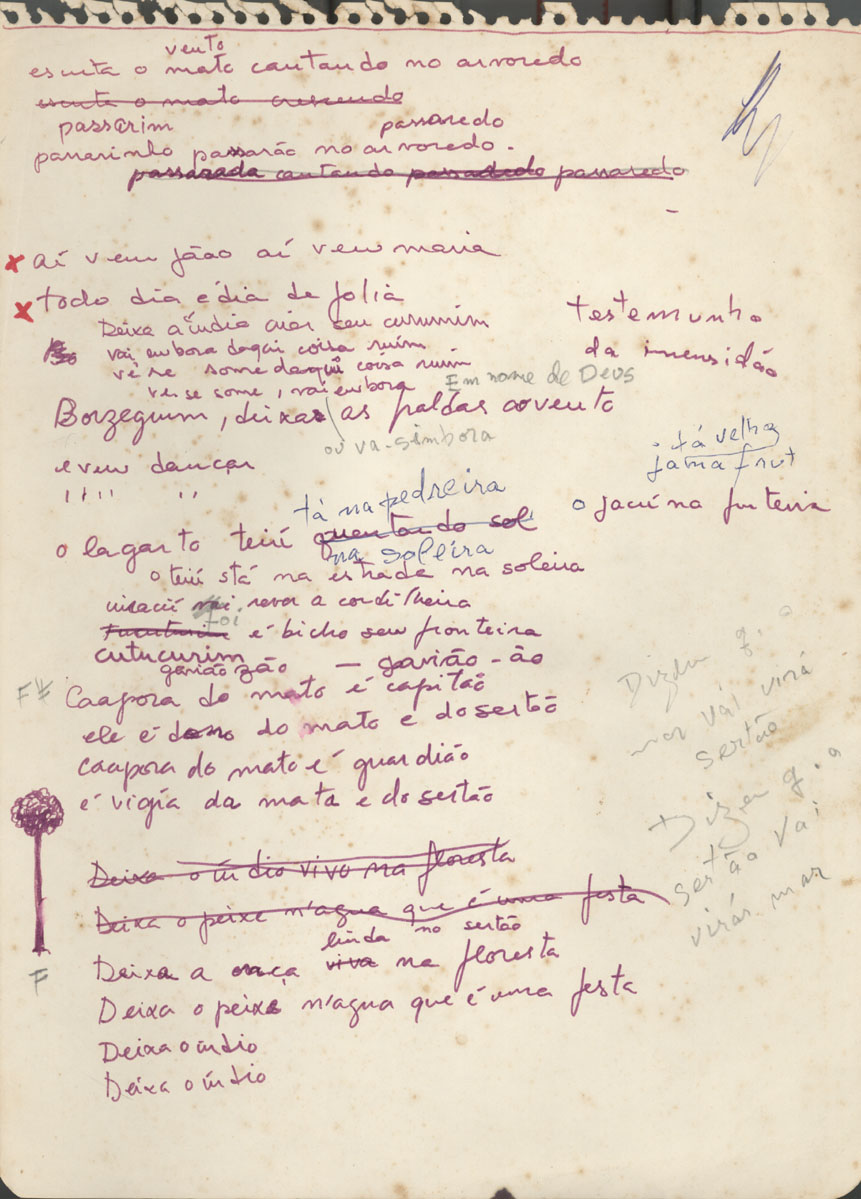 vento
escuta o mato cantando no arvoredo
escuta o mato crescendo
passarim passaredo
passarinho passarão no arvoredo.
passarada cantando passaredo passaredo
x aí vem jãao aí vem maria
x todo dia é dia de folia
Deixa a índia criar seu curumim
vai embora daqui coisa ruim
vê se some daqui coisa ruim
ve se some, vai embora
Em nome de Deus
testemunho
da imensidão
Borzeguim, deixas as faldas ao vento
ou va-simbora
e vem dançar
" " "
tá velha
jaina frut
tá na pedreira
o lagarto teiú quentando sol
o jacú na fruteira
na soleira
o teiú stá na estrada na soleira
foi rever a cordilheira
é bicho sem fronteira
cutucurim
gavião zão — gavião-ão
Caapora do mato é capitão
ele é dono do mato e do sertão
caapora do mato é guardião
é vigia da mata e do sertão
Dizem q. o
mar vai virá
sertão
Dizem q. o
sertão vai
virár mar
Deixa o índio vivo na floresta
Deixa o peixe n'agua que é uma festa
linda no sertão
F
Deixa a onça viva na floresta
Deixa o peixe n'agua que é uma festa
Deixa o índio
Deixa o índio